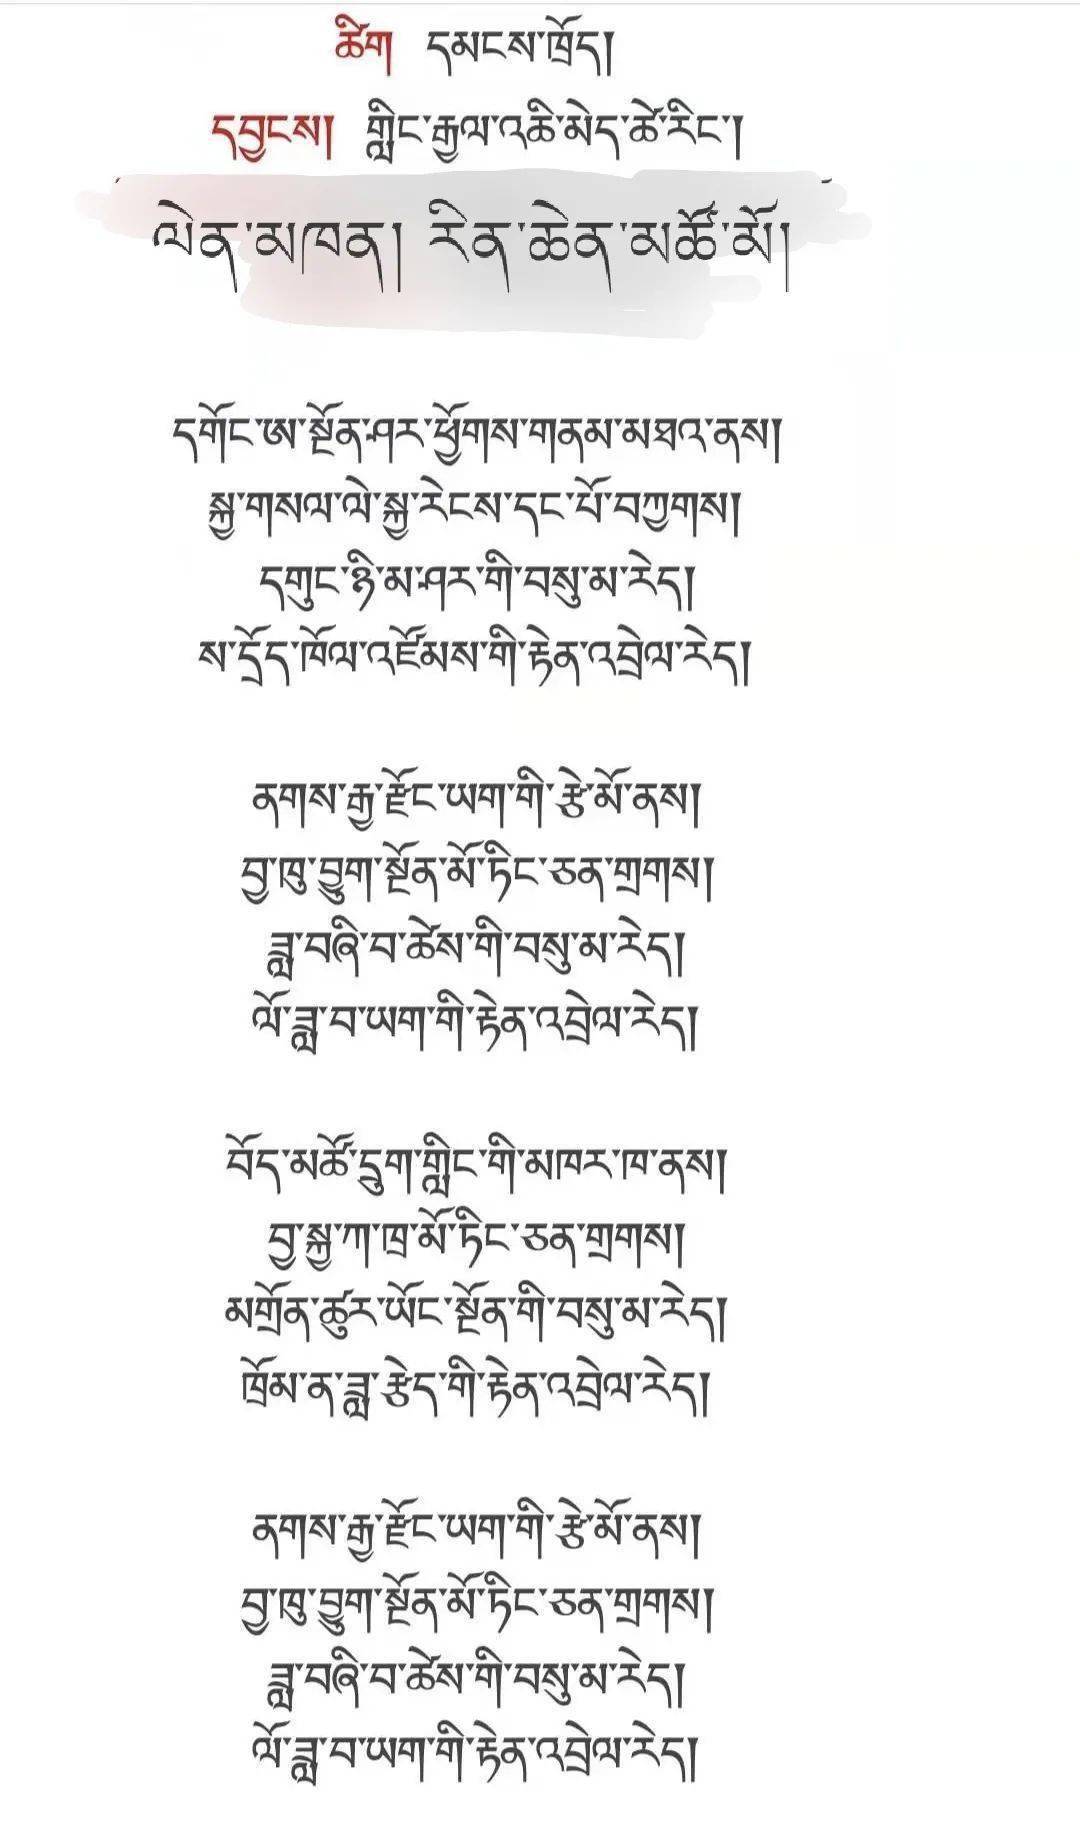 ཚིག དམངས་ཁྲོད།
དབྱངས། གླིང་རྒྱལ་འཆི་མེད་ཚེ་རིང་།
ལེན་མཁན། རིན་ཆེན་མཚོ་མོ།
དགོང་ཨ་སྔོན་ཤར་ཕྱོགས་གནམ་མཐའ་ནས།
སྐྱ་གསལ་ལེ་སྐྱ་རེངས་དང་པོ་བཀྱགས།
དགུང་ཉི་མ་ཤར་གི་བསུ་མ་རེད།
ས་དྲོད་ཁོལ་འཛོམས་གི་རྟེན་འབྲེལ་རེད།
ནགས་རྒྱ་རྫོང་ཡག་གི་རྩེ་མོ་ནས།
བྱ་ཁུ་བྱུག་སྔོན་མོ་ཏིང་ཅན་གྲགས།
ཟླ་བཞི་བ་ཚེས་གི་བསུ་མ་རེད།
ལོ་ཟླ་བ་ཡག་གི་རྟེན་འབྲེལ་རེད།
བོད་མཚོ་དྲུག་གླིང་གི་མཁར་ཁ་ནས།
བྱ་སྐྱ་ཀ་ཁྲ་མོ་ཏིང་ཅན་གྲགས།
མགྲོན་ཚུར་ཡོང་སྔོན་གི་བསུ་མ་རེད།
ཁྲོམ་ན་ཟླ་རྩེད་གི་རྟེན་འབྲེལ་རེད།
ནགས་རྒྱ་རྫོང་ཡག་གི་རྩེ་མོ་ནས།
བྱ་ཁུ་བྱུག་སྔོན་མོ་ཏིང་ཅན་གྲགས།
ཟླ་བཞི་བ་ཚེས་གི་བསུ་མ་རེད།
ལོ་ཟླ་བ་ཡག་གི་རྟེན་འབྲེལ་རེད།